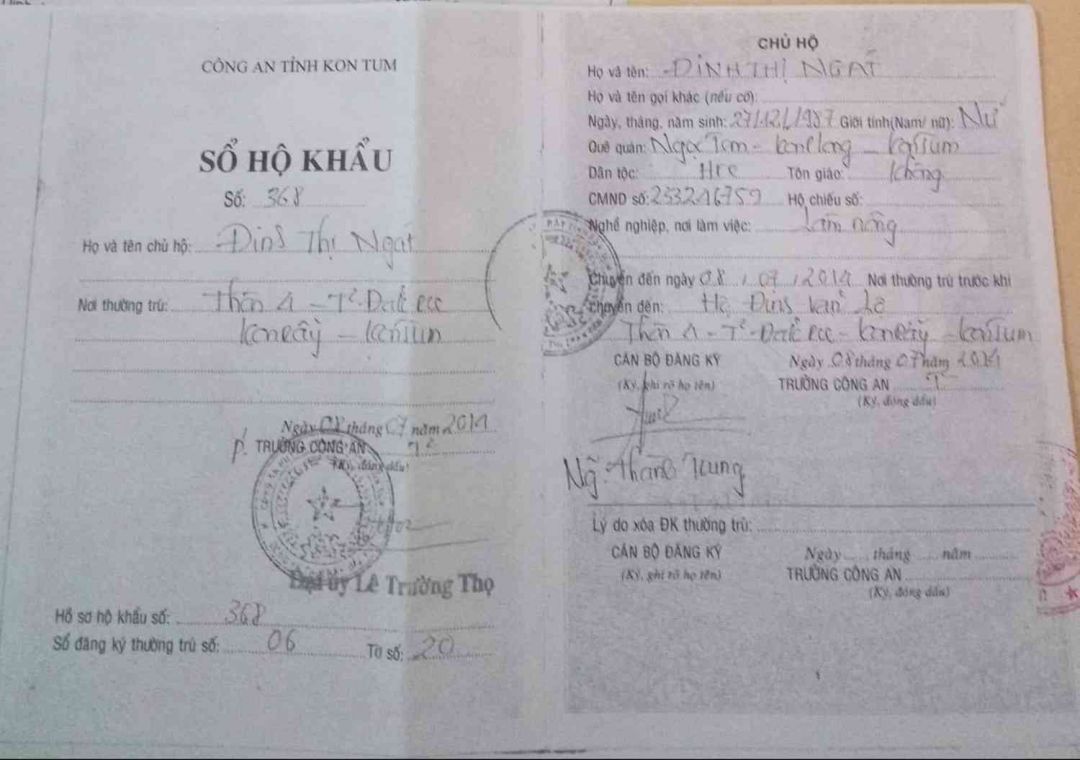 CÔNG AN TỈNH KON TUM
SỔ HỘ KHẨU
Số: 368
Họ và tên chủ hộ: Đinh Thị Ngat
Nơi thường trú: Thôn 1 - T². Đak
- KonTum
Ngày 08 tháng 07 năm 2014
TRƯỞNG CÔNG AN T²
(Ký, đóng dấu)
Đại úy Lê Trường Thọ
Hồ sơ hộ khẩu số: 368
Sổ đăng ký thường trú số: 06 Tờ số: 20
CHỦ HỘ
Họ và tên: ĐINH THỊ NGAT
Họ và tên gọi khác (nếu có):
Ngày, tháng, năm sinh: 27/12/1987 Giới tính(Nam/ nữ): Nữ
Quê quán: Ngọc Tem - KonTum
Dân tộc: Hre Tôn giáo: không
CMND số: 233216759 Hộ chiếu số:
Nghề nghiệp, nơi làm việc: Làm nông
Chuyển đến ngày 08 / 07 / 2014 Nơi thường trú trước khi
chuyển đến: Hộ Đinh Văn
Thôn 1 - T². Đak - KonTum
CÁN BỘ ĐĂNG KÝ
(Ký, ghi rõ họ tên)
Ngày 08 tháng 07 năm 2014
TRƯỞNG CÔNG AN T²
(Ký, đóng dấu)
Ng. Thành Trung
Lý do xóa ĐK thường trú:
CÁN BỘ ĐĂNG KÝ
(Ký, ghi rõ họ tên)
Ngày tháng năm
TRƯỞNG CÔNG AN
(Ký, đóng dấu)